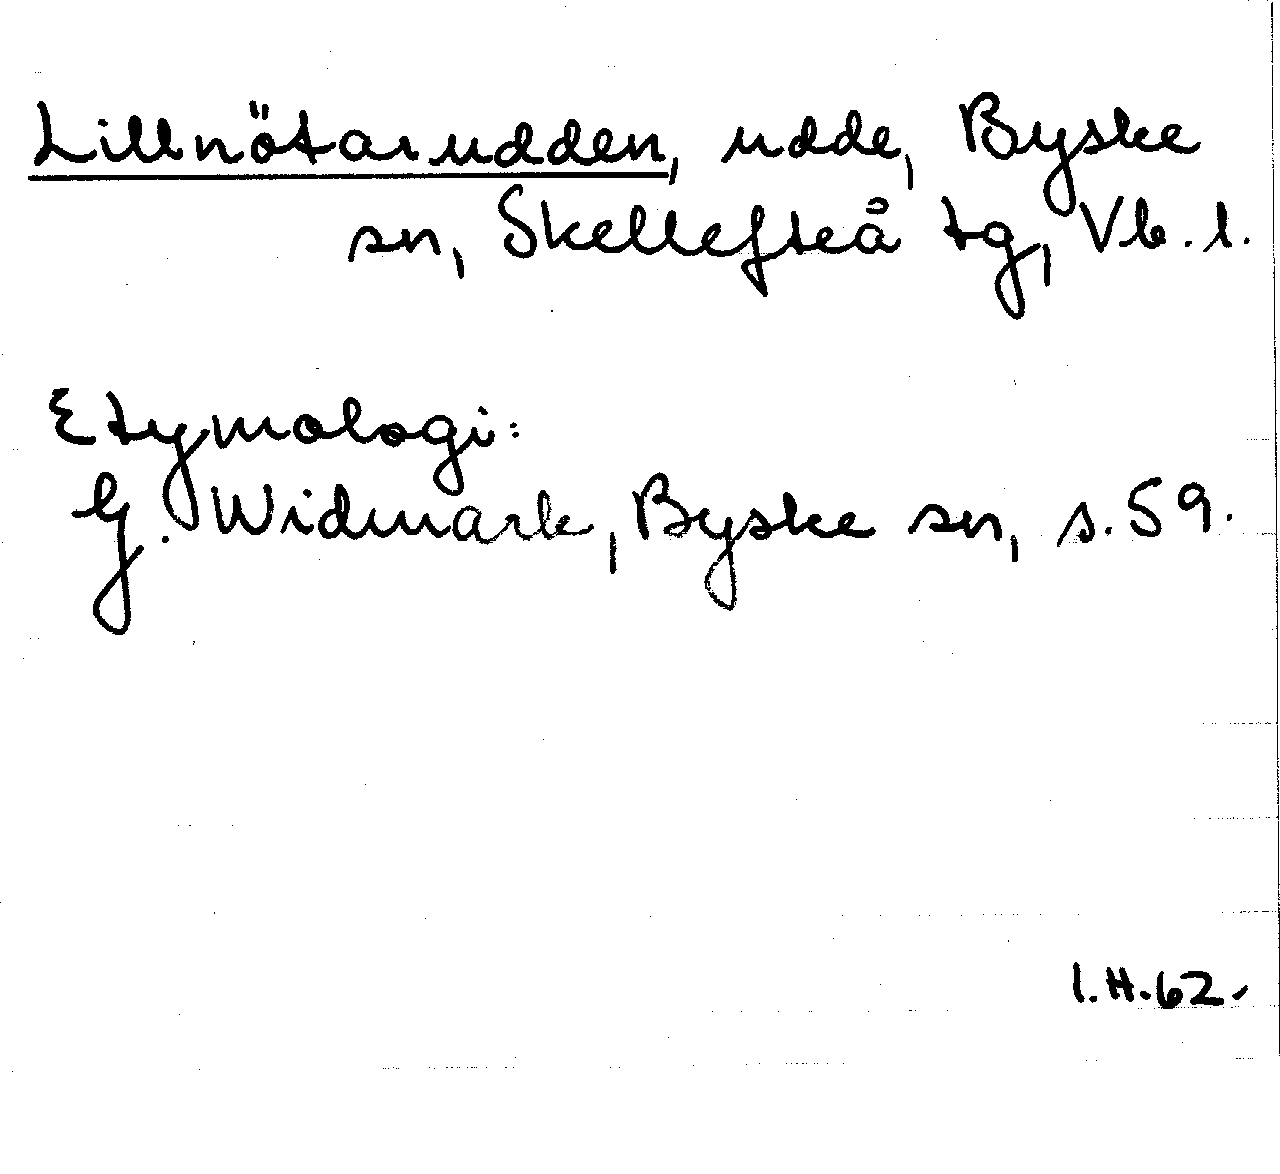 Lillnötarudden, udde, Byske
sn, Skellefteå tg, Vb. l.
Etymologi:
G. Widmark, Byske sn, s. 59.
I.H.62.